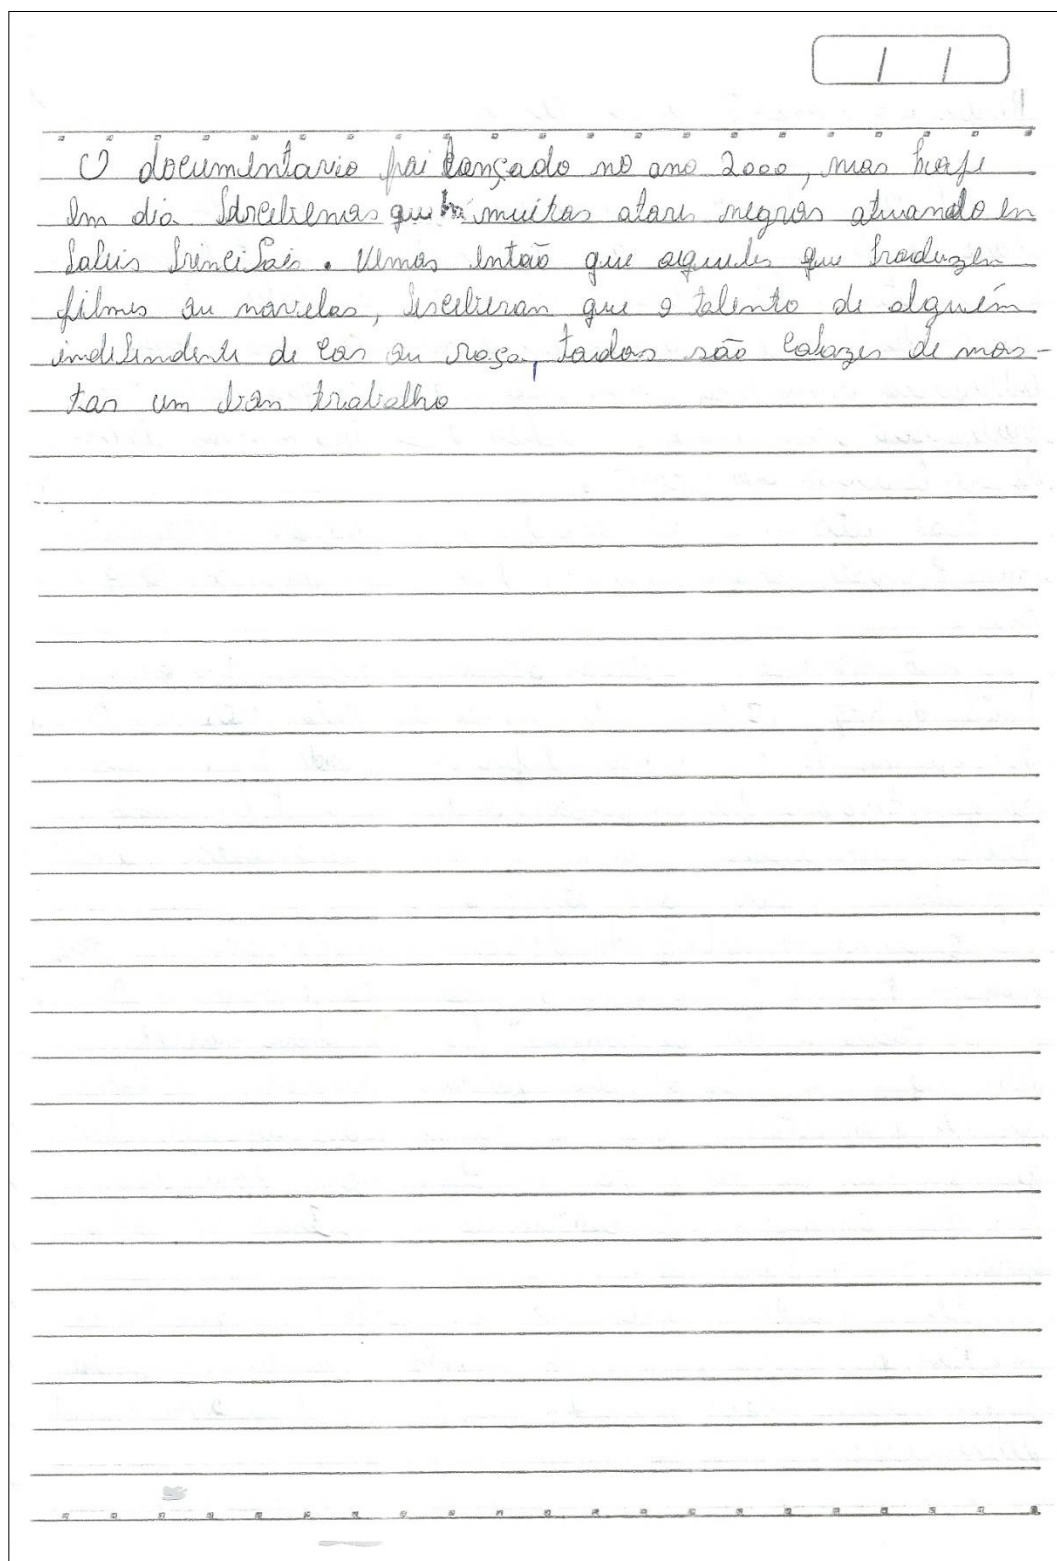 O documentario foi lançado no ano 2000, mas hoje
em dia percebemos que há muitos atores negros atuando em
papeis principais. Vemos então que aqueles que produzem
filmes ou novelas, perceberam que o talento de alguém
independente de cor ou raça, todos são capazes de mos-
tar um bom trabalho